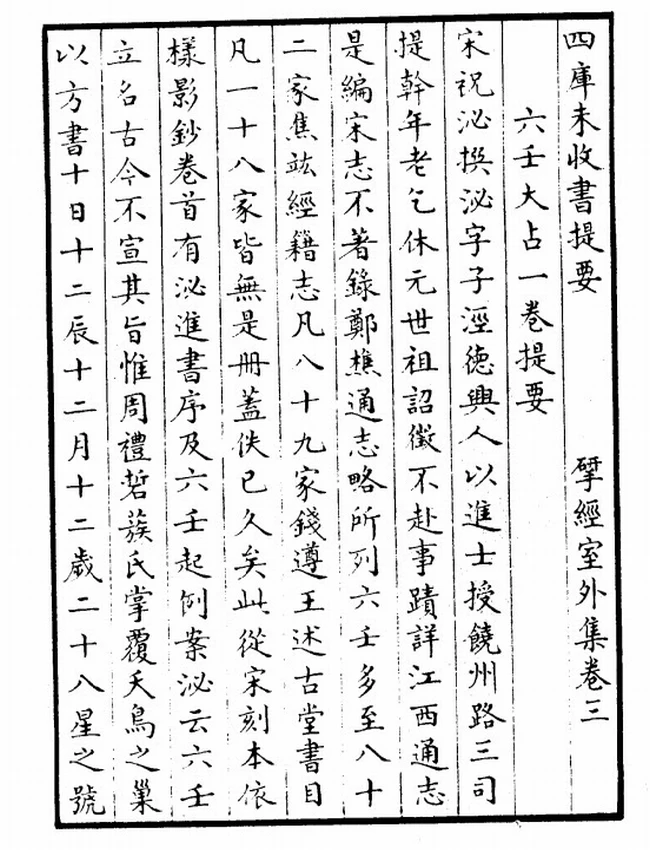 四庫未收書提要 揅經室外集卷三
六壬大占一卷提要
宋祝泌撰泌字子涇德興人以進士授饒州路三司
提幹年老乞休元世祖詔徵不赴事蹟詳江西通志
是編宋志不著錄鄭樵通志略所列六壬多至八十
二家焦竑經籍志凡八十九家錢遵王述古堂書目
凡一十八家皆無是冊蓋佚已久矣此從宋刻本依
樣影鈔卷首有泌進書序及六壬起例案泌云六壬
立名古今不宣其旨惟周禮硩蔟氏掌覆夭鳥之巢
以方書十日十二辰十二月十二歲二十八星之號